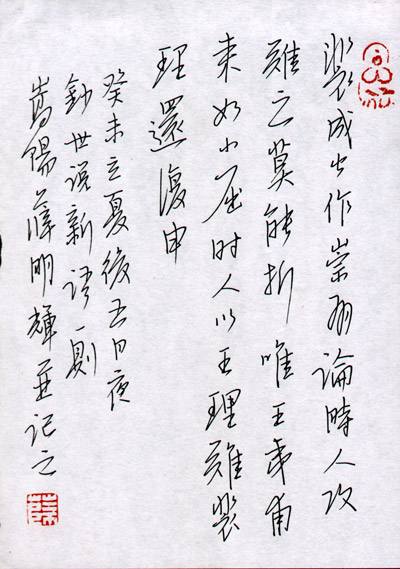 裴成公作崇有論時人攻
難之莫能折 唯王夷甫
来如小屈时人以王理難裴
理還復申
癸未立夏後五日夜
鈔世说新语一則
嵩陽薛明輝並记之